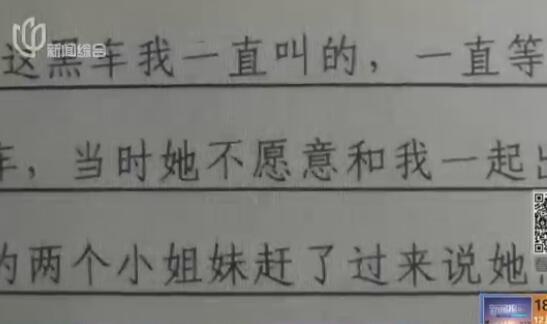 新闻综合
这黑车我一直叫的，一直等
车，当时她不愿意和我一起出
的两个小姐妹赶了过来说她
18